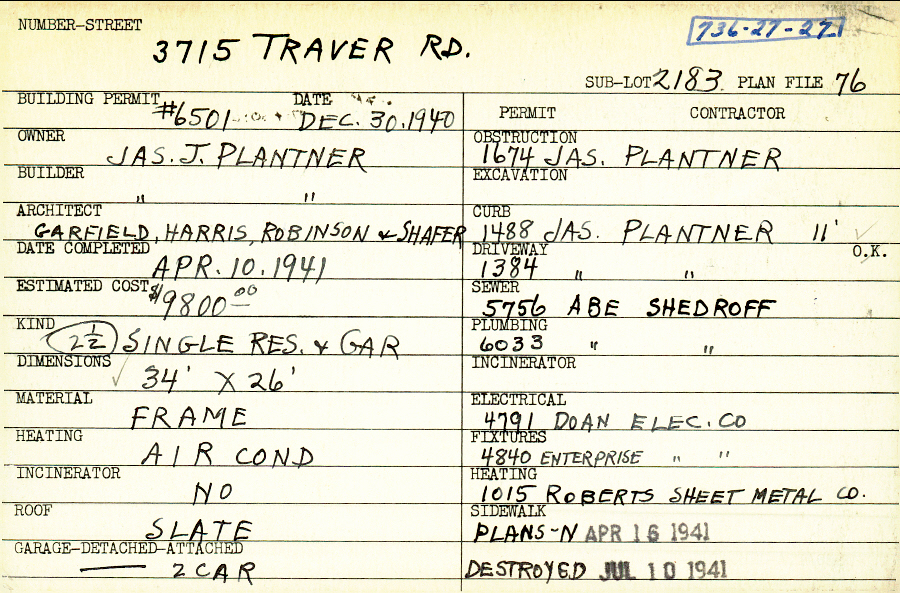 NUMBER-STREET
736-27-27
3715 TRAVER RD.
SUB-LOT 2183 PLAN FILE 76
BUILDING PERMIT #6501 DATE DEC. 30. 1940
OWNER
JAS. J. PLANTNER
BUILDER
" "
ARCHITECT
GARFIELD, HARRIS, ROBINSON & SHAFER
DATE COMPLETED
APR. 10. 1941
ESTIMATED COST $9800.00
KIND
2½ SINGLE RES. & GAR
DIMENSIONS
34' X 26'
MATERIAL
FRAME
HEATING
AIR COND
INCINERATOR
NO
ROOF
SLATE
GARAGE-DETACHED-ATTACHED
2 CAR
PERMIT CONTRACTOR
OBSTRUCTION
1674 JAS. PLANTNER
EXCAVATION
CURB
1488 JAS. PLANTNER 11'
DRIVEWAY O.K.
1384 " "
SEWER
5756 ABE SHEDROFF
PLUMBING
6033 " "
INCINERATOR
ELECTRICAL
4791 DOAN ELEC. CO
FIXTURES
4840 ENTERPRISE " "
HEATING
1015 ROBERTS SHEET METAL CO.
SIDEWALK
PLANS-N APR 16 1941
DESTROYED JUL 10 1941